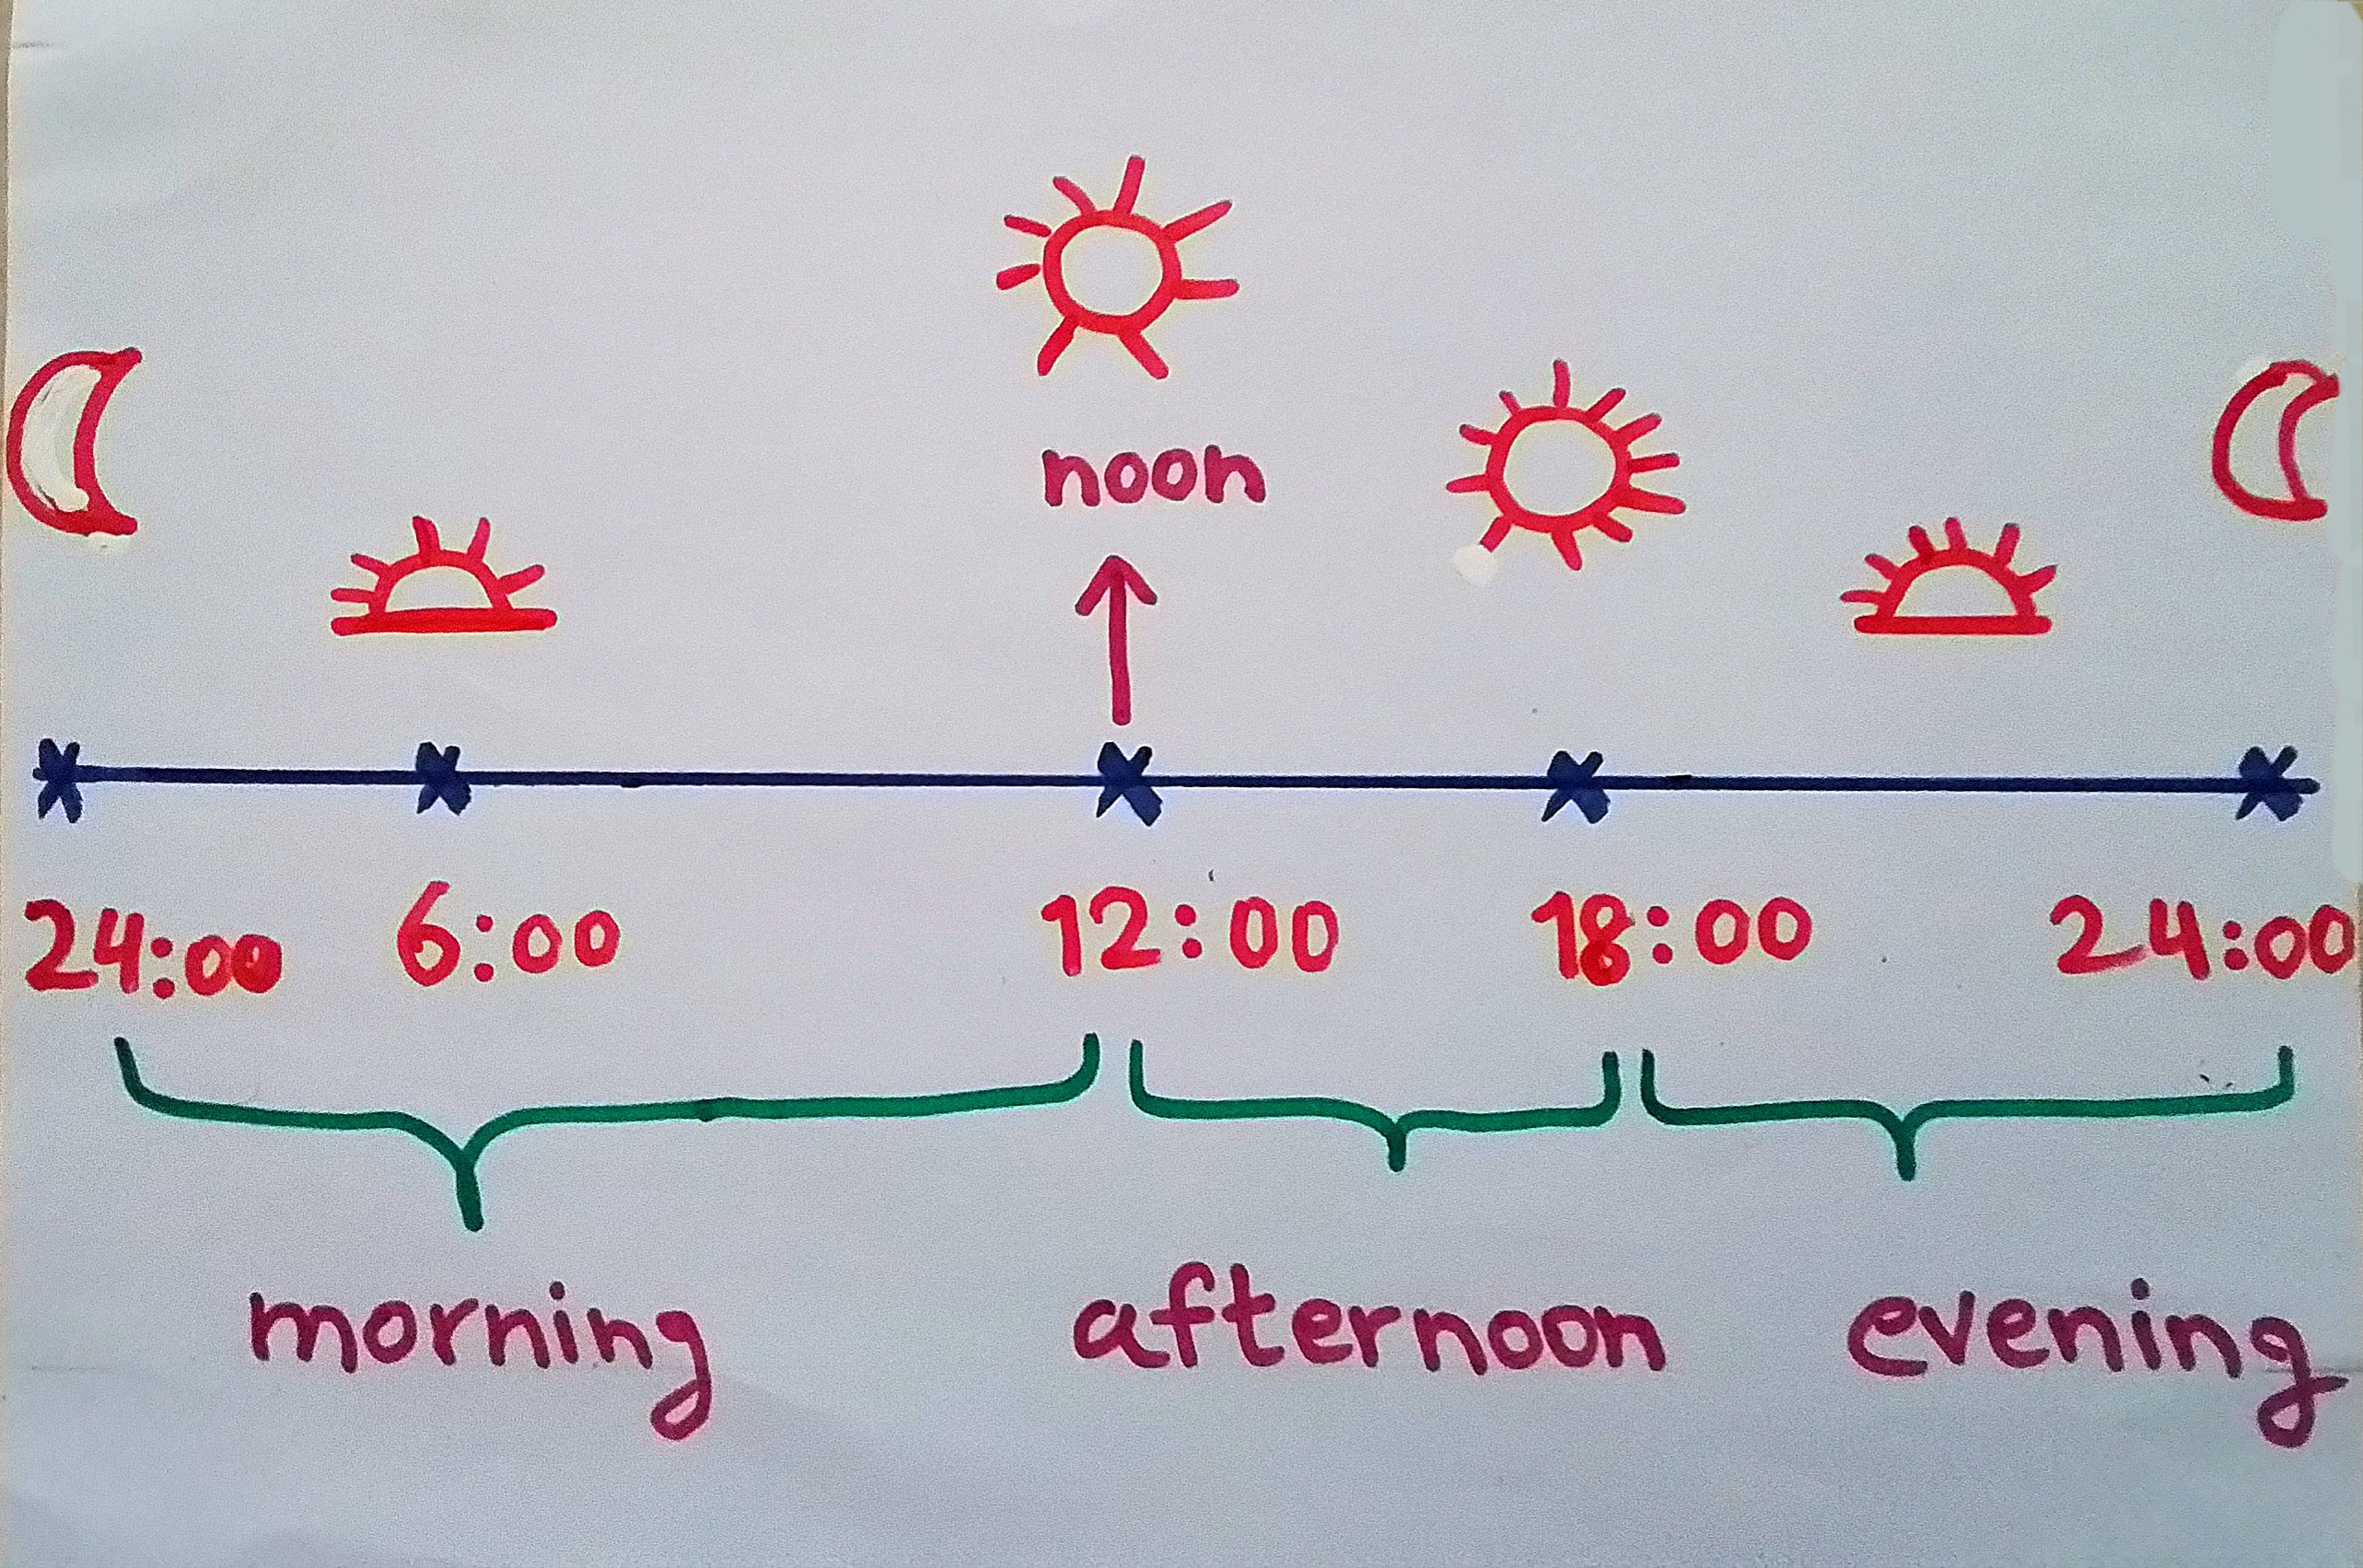 noon
24:00 6:00 12:00 18:00 24:00
morning afternoon evening